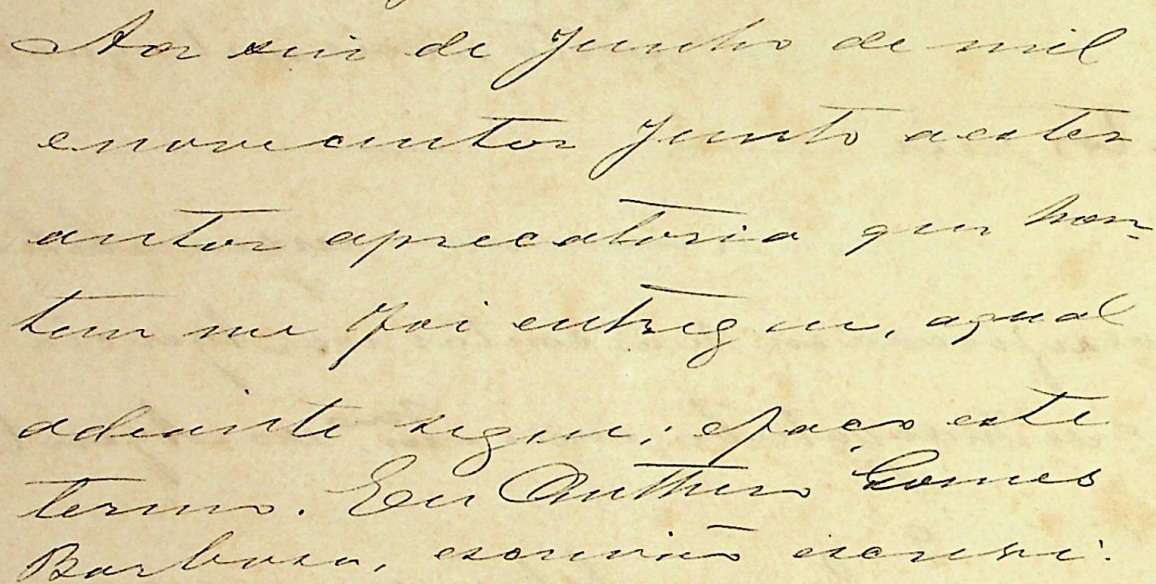 Aos seis de Junho de mil
enovecentos junto aestes
autos aprecatoria que hon-
tem me foi entregue, aqual
adeiante segue; efaço este
termo. Eu Anthero Gomes
Barbosa, escrivão escrevi.